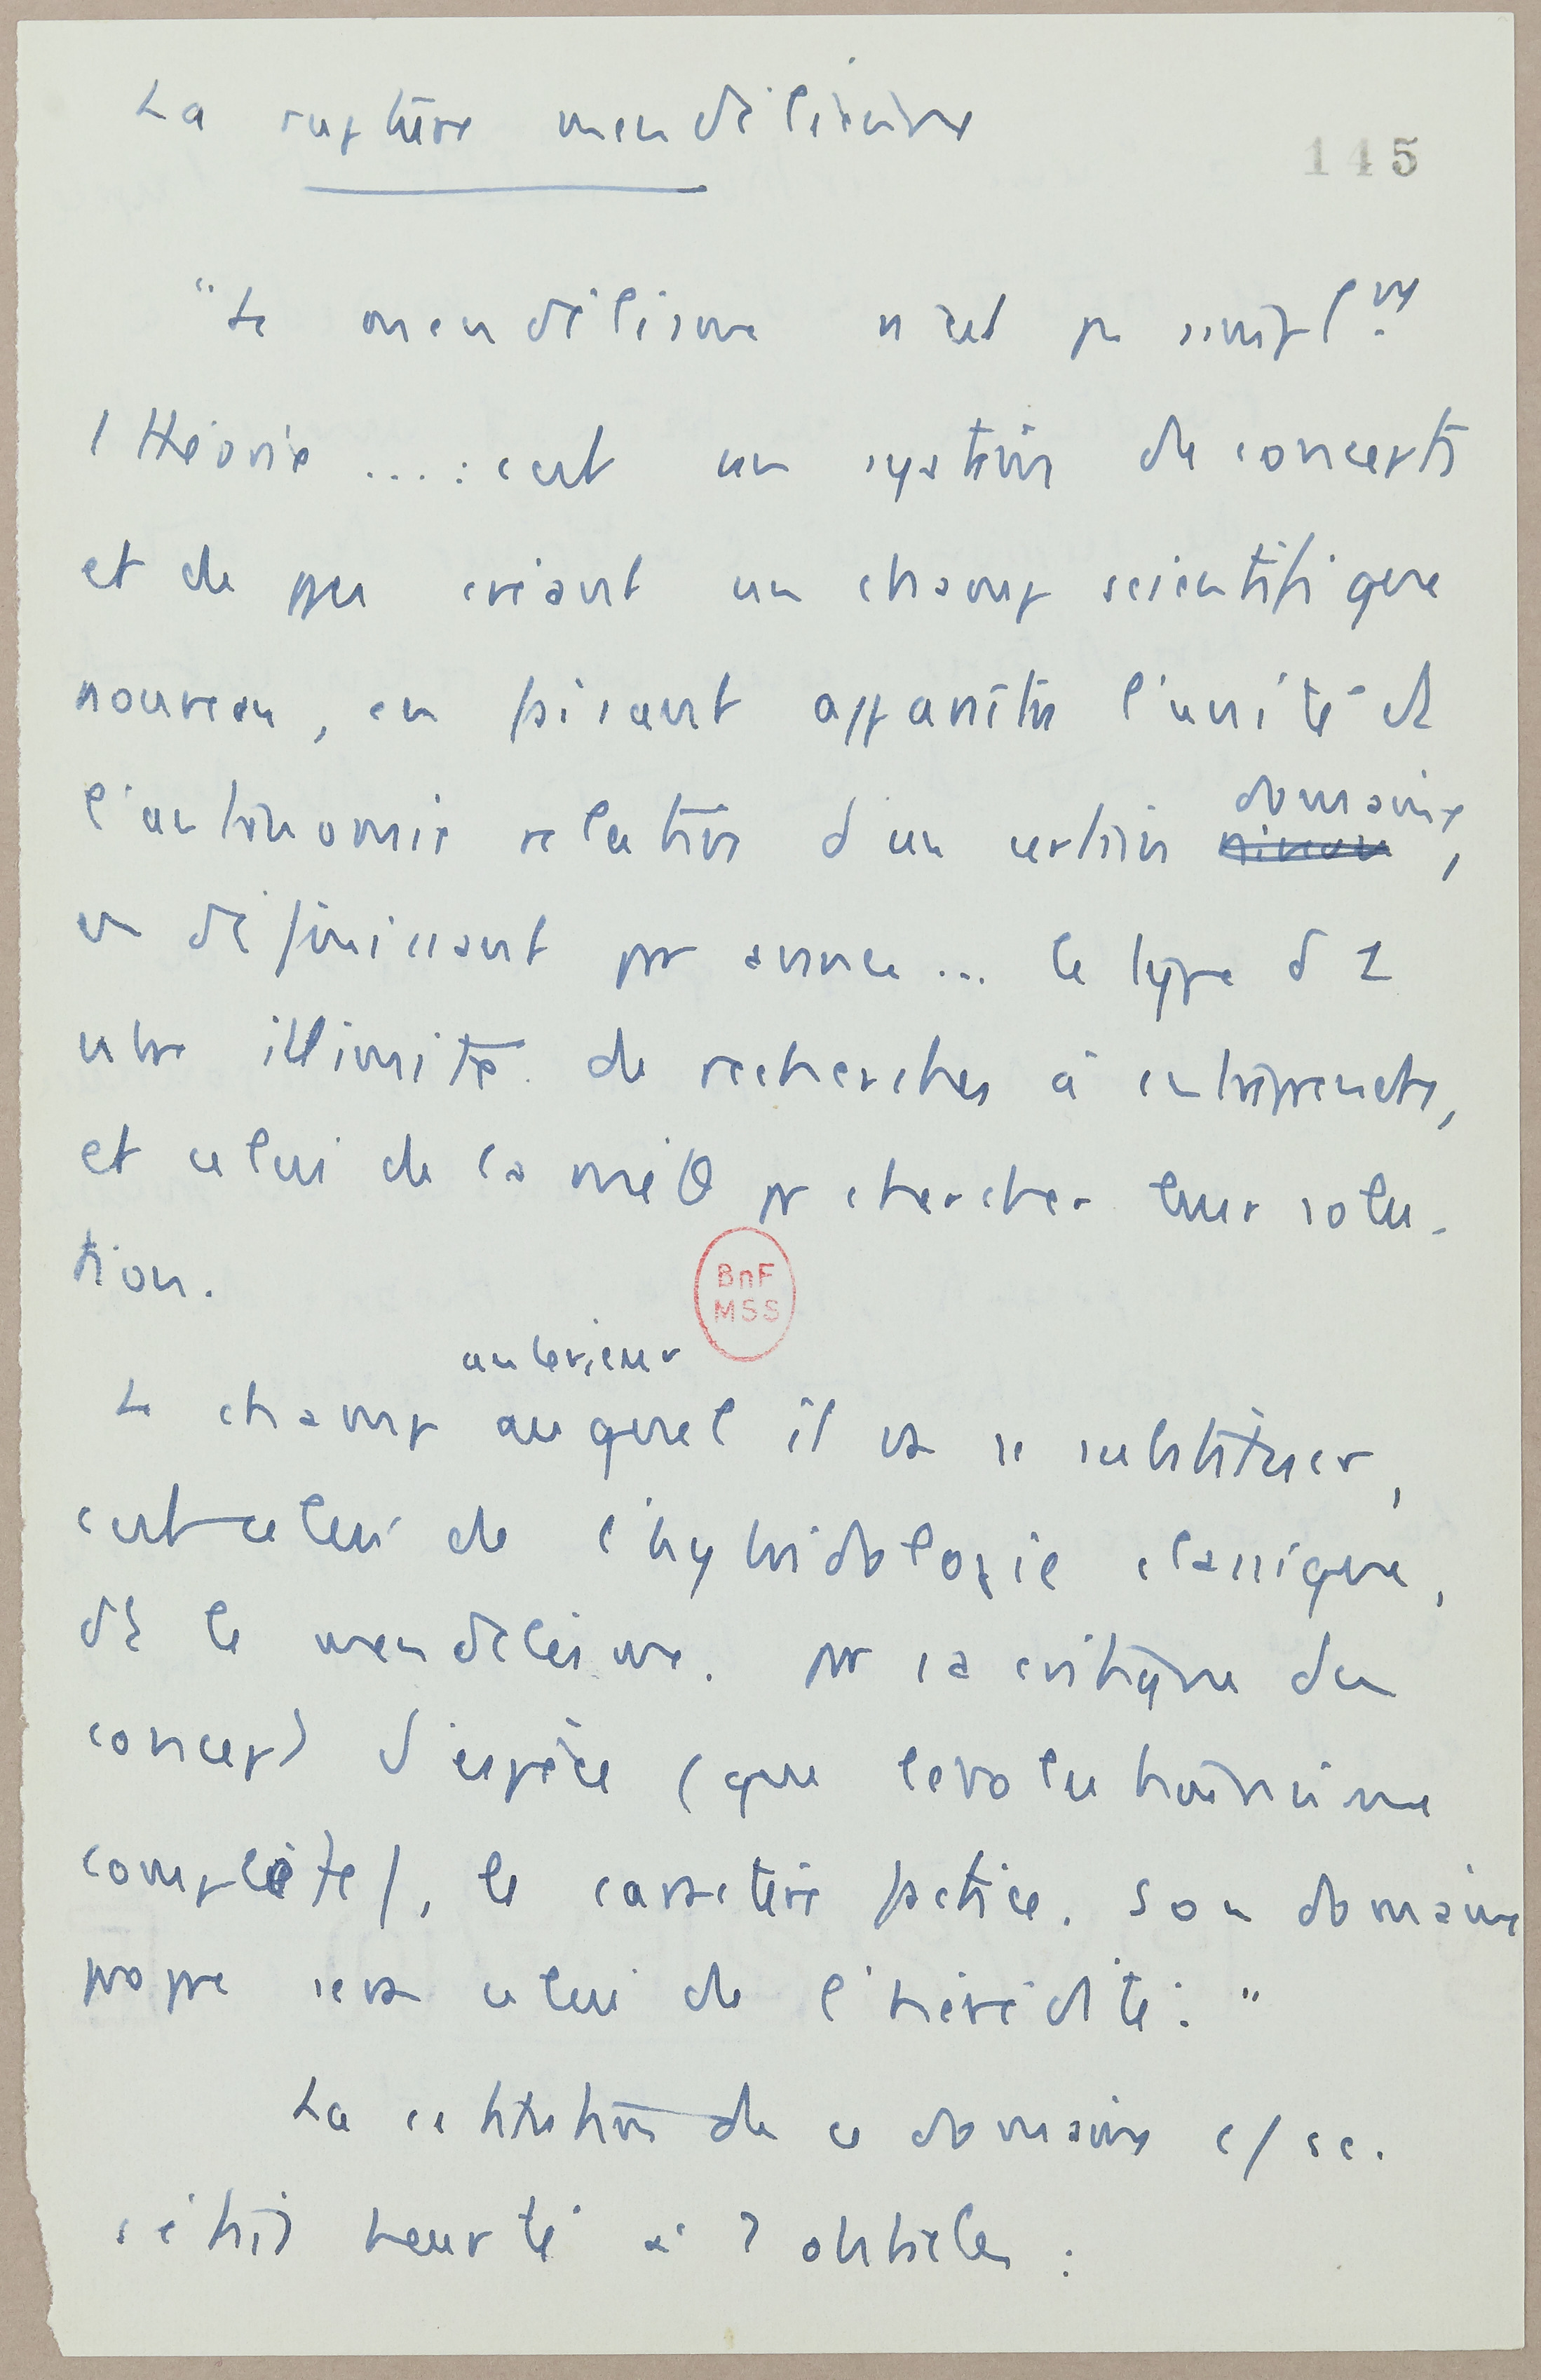 La rupture mendélienne
145
"Le mendélisme n'est pas simplᵗ
1 théorie ....: c'est un système de concepts
et de pbs créant un champ scientifique
nouveau, en faisant apparaître l'unité et
l'autonomie relative d'un certain niveau domaine,
en définissant par avance ... le type d'1
nbre illimité de recherches à entreprendre,
et celui de la méθ pr chercher leur solu-
tion.
antérieur
Le champ auquel il va se substituer,
c'est celui de l'hybridologie classique,
dt le mendélisme. par sa critique du
concept d'espèce (que l'évolutionnisme
complète), le caractère factice. Son domaine
propre sera celui de l'hérédité."
La constitution de ce domaine c/ sc.
s'était heurté à 2 obstacles :
BnF
MSS